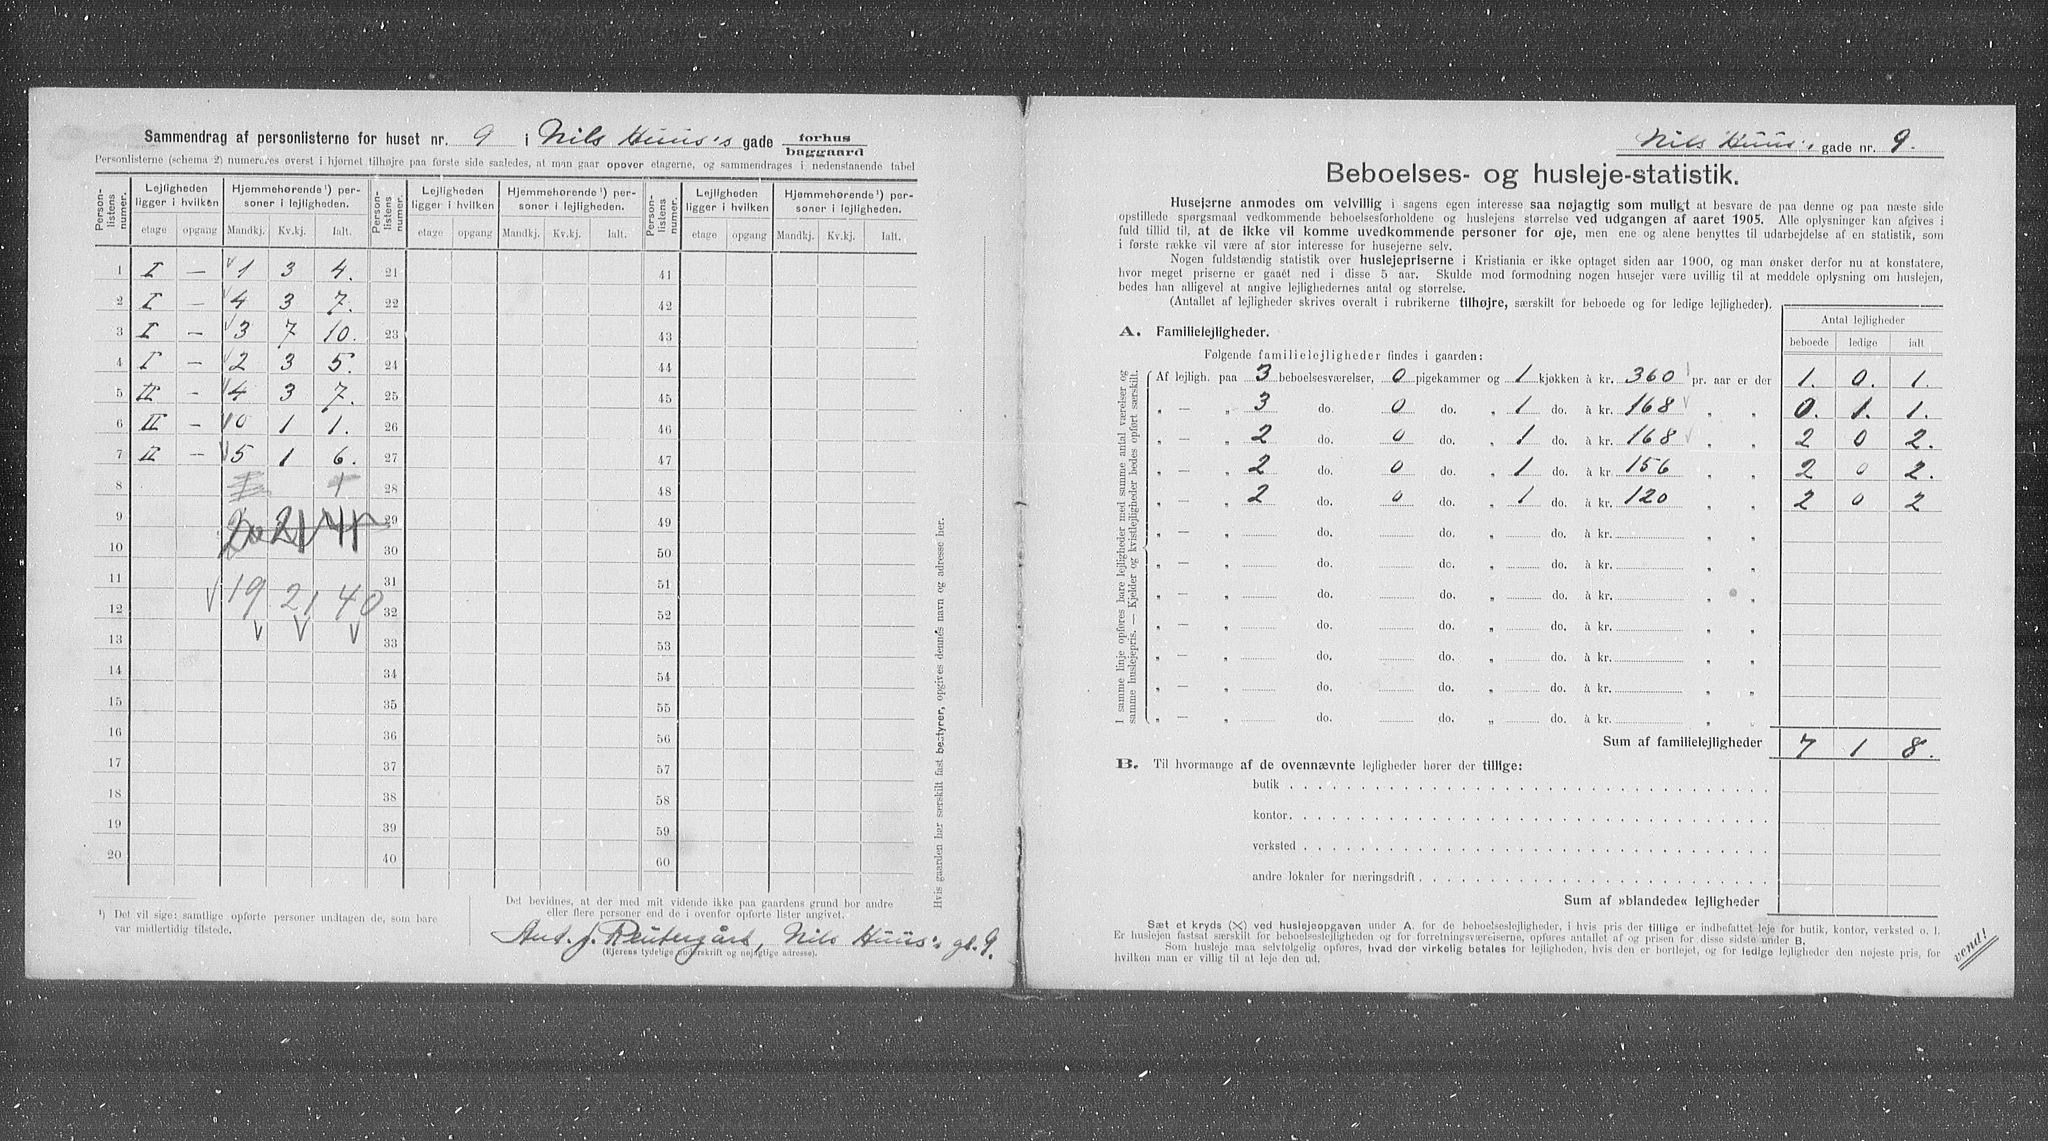 Sammendrag af personlisterne for huset nr. 9 i Nils Huus's gade forhus
baggaard
Personlisterne (schema 2) numereres øverst i hjørnet tilhøjre paa første side saaledes, at man gaar opover etagerne, og sammendrages i nedenstaaende tabel
Person-listens numer. Lejligheden ligger i hvilken Hjemmehørende¹) personer i lejligheden. Person-listens numer. Lejligheden ligger i hvilken Hjemmehørende¹) personer i lejligheden. Person-listens numer. Lejligheden ligger i hvilken Hjemmehørende¹) personer i lejligheden.
etage opgang Mandkj. Kv.kj. Ialt. etage opgang Mandkj. Kv.kj. Ialt. etage opgang Mandkj. Kv.kj. Ialt.
1 I — 1 3 4. 21 41
2 I — 4 3 7. 22 42
3 I — 3 7 10. 23 43
4 I — 2 3 5. 24 44
5 II — 4 3 7. 25 45
6 II — 0 1 1. 26 46
7 II — 5 1 6. 27 47
8 28 48
9 20 21 41 29 49
10 30 50
11 19 21 40 31 51
12 32 52
13 33 53
14 34 54
15 35 55
16 36 56
17 37 57
18 38 58
19 39 59
20 40 60
Hvis gaarden har særskilt fast bestyrer, opgives dennes navn og adresse her.
¹) Det vil sige: samtlige opførte personer undtagen de, som bare
var midlertidig tilstede.
Det bevidnes, at der med mit vidende ikke paa gaardens grund bor andre
eller flere personer end de i ovenfor opførte lister angivet.
Ant. J. Reutergårt, Nils Huus's gt. 9.
(Ejerens tydelige underskrift og nøjagtige adresse).
Nils Huus's gade nr. 9.
Beboelses- og husleje-statistik.
Husejerne anmodes om velvillig i sagens egen interesse saa nøjagtig som muligt at besvare de paa denne og paa næste side
opstillede spørgsmaal vedkommende beboelsesforholdene og huslejens størrelse ved udgangen af aaret 1905. Alle oplysninger kan afgives i
fuld tillid til, at de ikke vil komme uvedkommende personer for øje, men ene og alene benyttes til udarbejdelse af en statistik, som
i første række vil være af stor interesse for husejerne selv.
Nogen fuldstændig statistik over huslejepriserne i Kristiania er ikke optaget siden aar 1900, og man ønsker derfor nu at konstatere,
hvor meget priserne er gaaét ned i disse 5 aar. Skulde mod formodning nogen husejer være uvillig til at meddele oplysning om huslejen,
bedes han alligevel at angive lejlighedernes antal og størrelse.
(Antallet af lejligheder skrives overalt i rubrikerne tilhøjre, særskilt for beboede og for ledige lejligheder).
Antal lejligheder
beboede ledige ialt
A. Familielejligheder.
Følgende familielejligheder findes i gaarden:
I samme linje opføres bare lejligheder med samme antal værelser og
samme huslejepris. — Kjelder og kvistlejligheder bedes opført særskilt.
Af lejligh. paa 3 beboelsesværelser, 0 pigekammer og 1 kjøkken à kr. 360 pr. aar er der 1. 0. 1.
„ — „ 3 do. 0 do. „ 1 do. à kr. 168 „ „ 0. 1. 1.
„ — „ 2 do. 0 do. „ 1 do. à kr. 168 „ „ 2 0 2.
„ — „ 2 do. 0 do. „ 1 do. à kr. 156 „ „ 2 0 2.
„ — „ 2 do. 0 do. „ 1 do. à kr. 120 „ „ 2 0 2
„ — „ do. do. „ do. à kr. „ „
„ — „ do. do. „ do. à kr. „ „
„ — „ do. do. „ do. à kr. „ „
„ — „ do. do. „ do. à kr. „ „
„ — „ do. do. „ do. à kr. „ „
„ — „ do. do. „ do. à kr. „ „
„ — „ do. do. „ do. à kr. „ „
Sum af familielejligheder 7 1 8.
B. Til hvormange af de ovennævnte lejligheder hører der tillige:
butik
kontor
verksted
andre lokaler for næringsdrift
Sum af »blandede« lejligheder
Sæt et kryds (X) ved huslejeopgaven under A. for de beboelseslejligheder, i hvis pris der tillige er indbefattet leje for butik, kontor, verksted o. l.
Er huslejen fastsat særskilt for beboelseslejligheden og for forretningsværelserne, opføres antallet af og prisen for disse sidste under B.
Som husleje maa selvfølgelig opføres, hvad der virkelig betales for lejligheden, hvis den er bortlejet, og for ledige lejligheder den nøjeste pris, for
hvilken man er villig til at leje den ud.
vend!